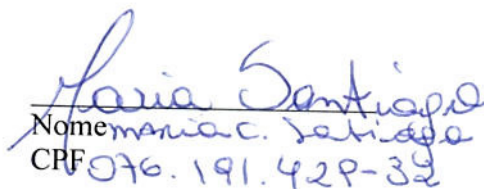 Maria Santiago
Nome maria C. Satiago
CPF 076.191.429-32